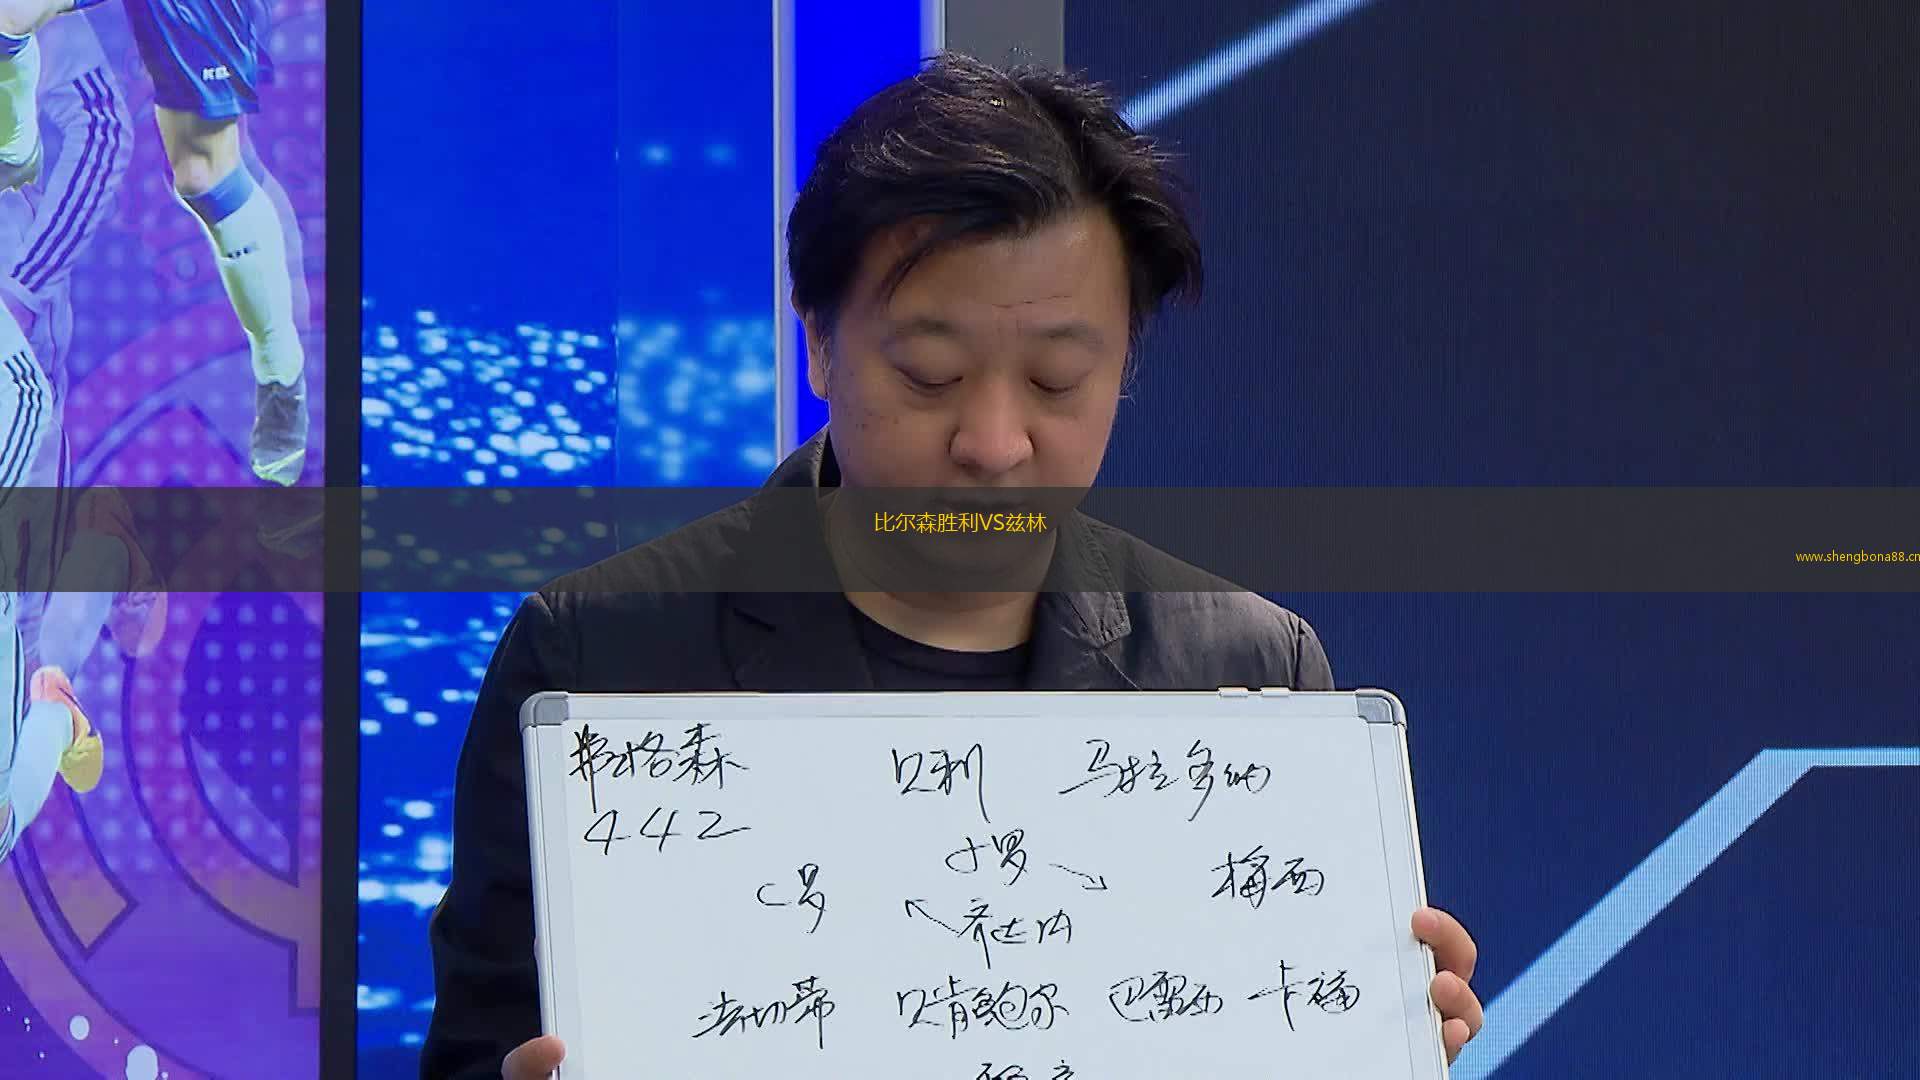 KEL
比尔森胜利VS兹林
www.shengbona88.cn
弗格森 贝利 马拉多纳
442
小罗
C罗 梅西
齐达内
法切蒂 贝肯鲍尔 巴雷西 卡福